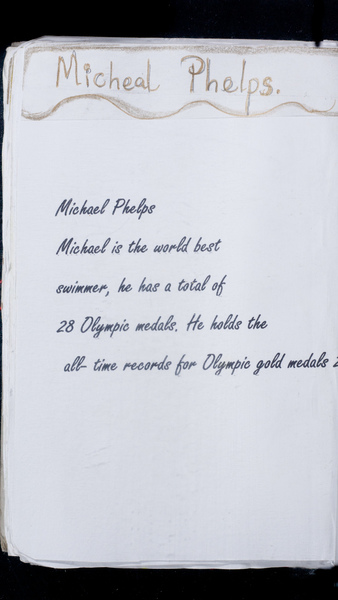 Micheal Phelps.
Michael Phelps
Michael is the world best
swimmer, he has a total of
28 Olympic medals. He holds the
all- time records for Olympic gold medals